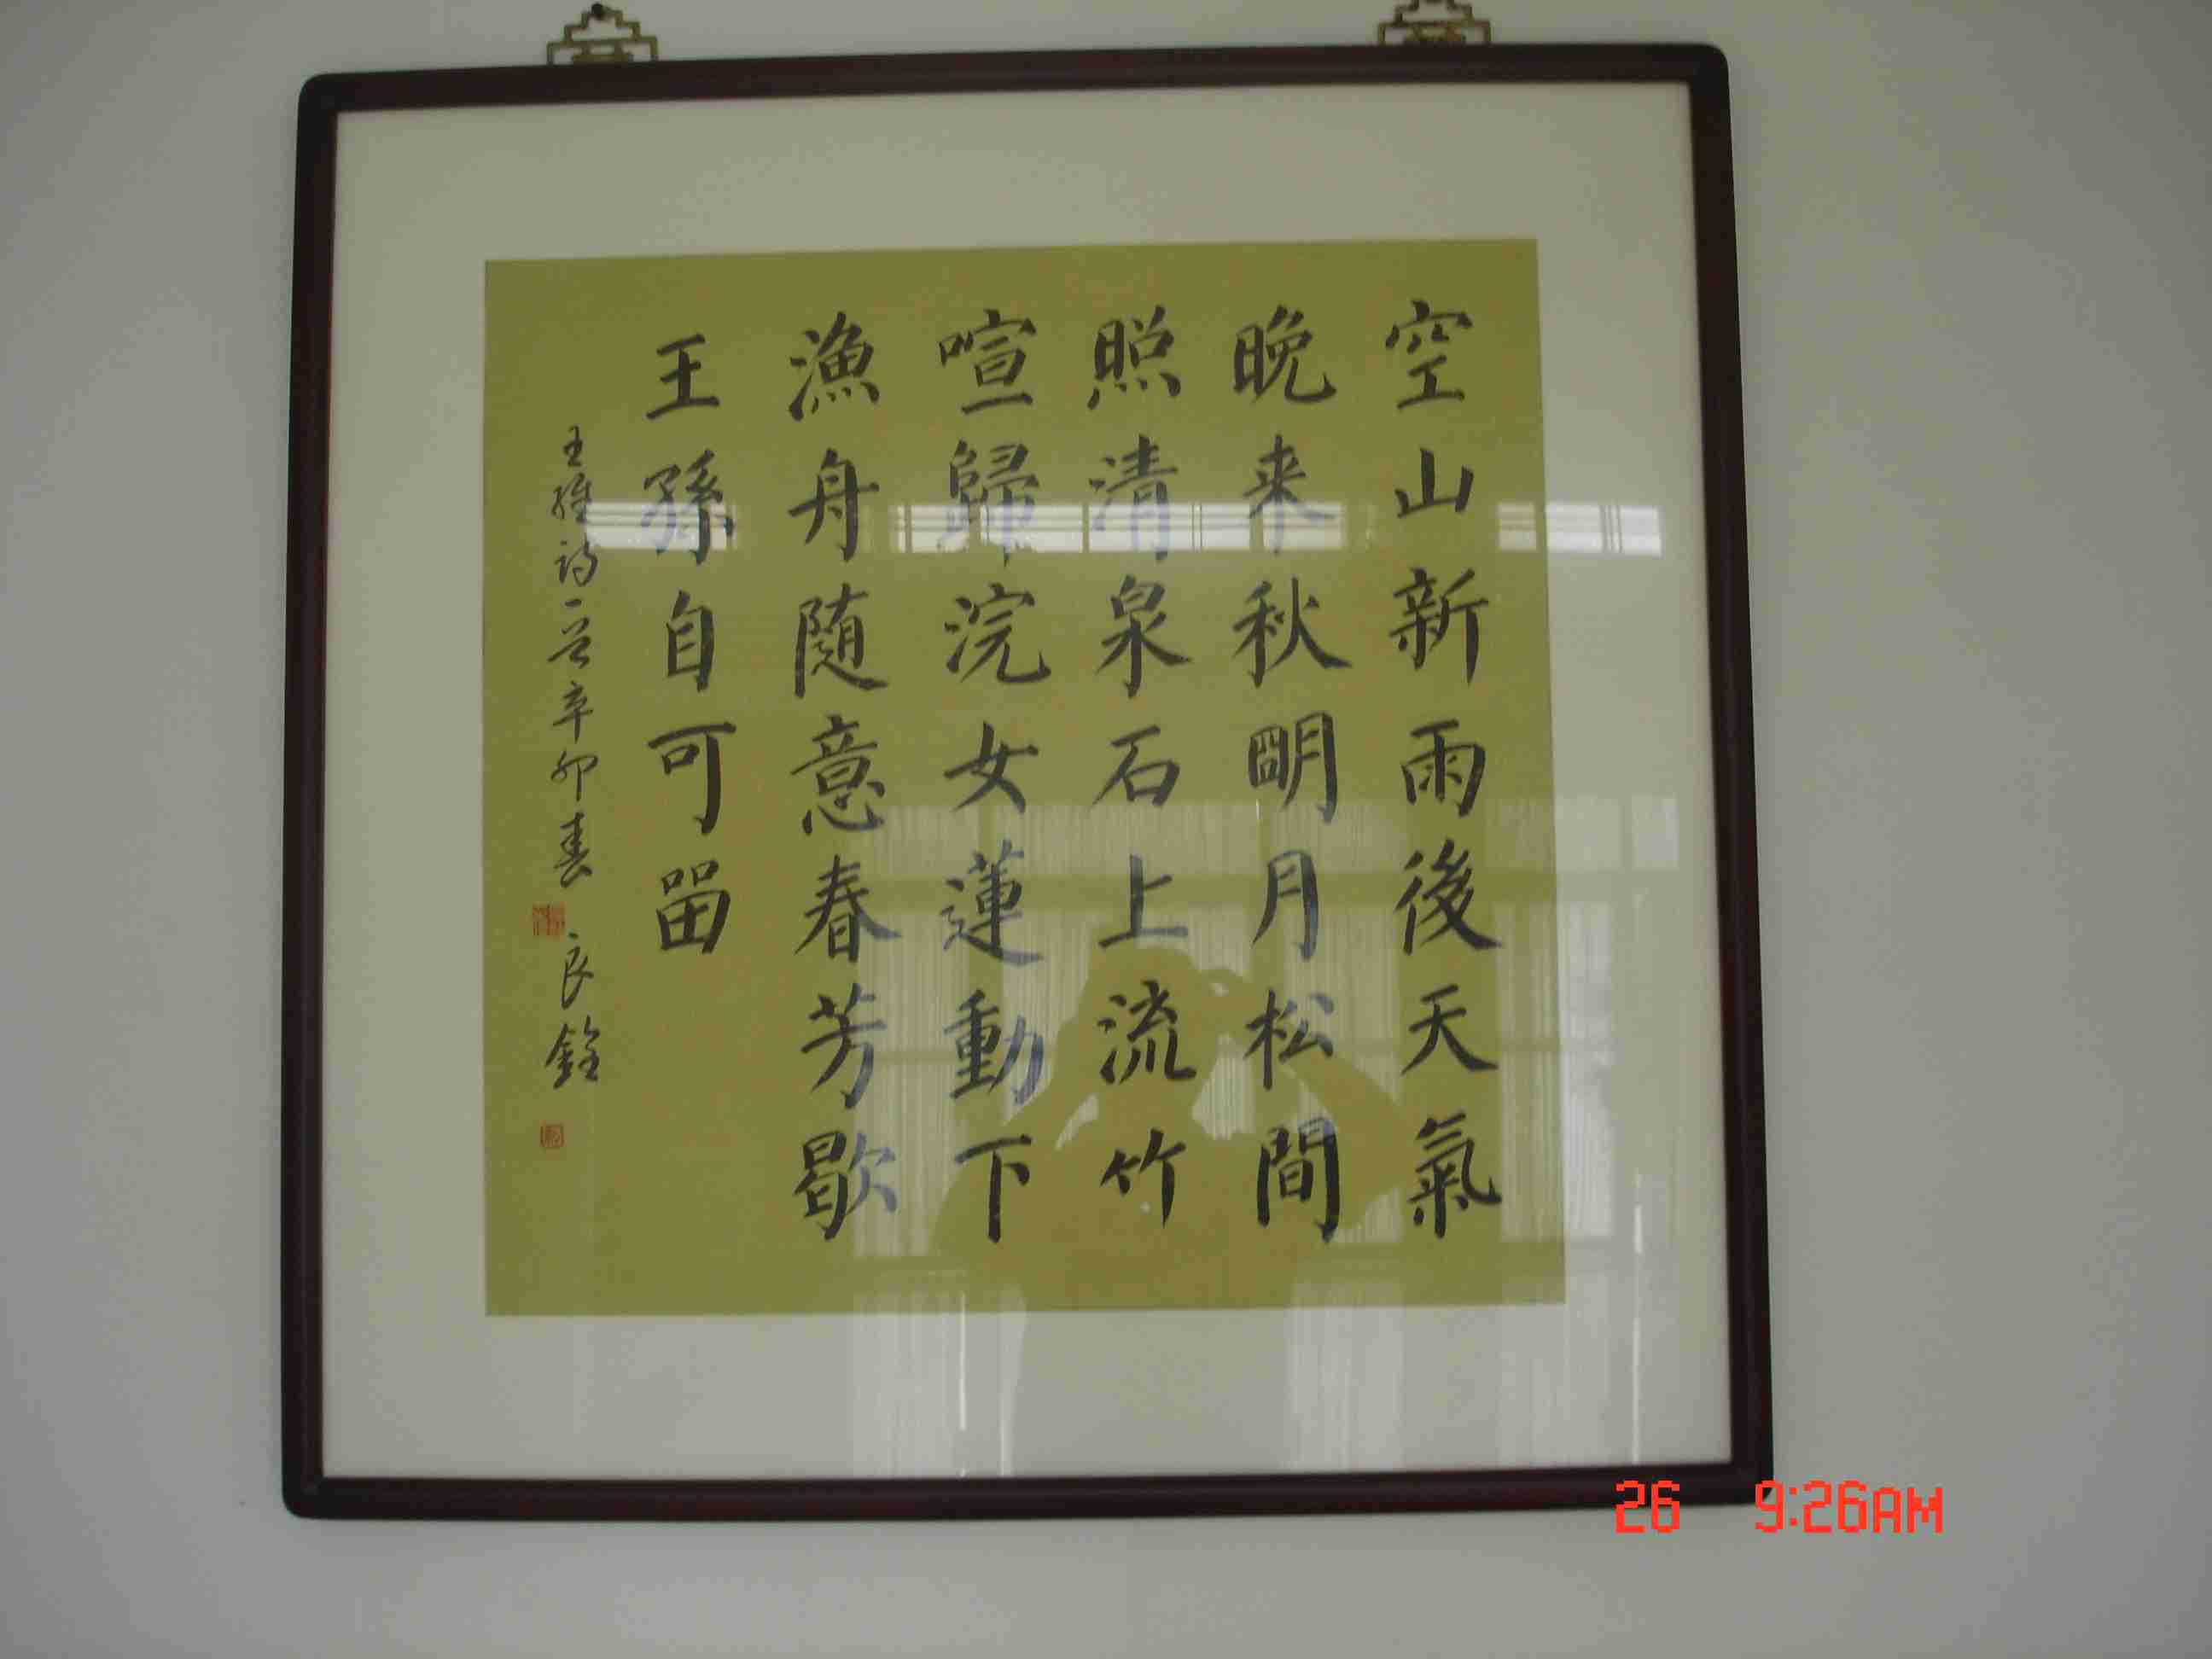 空山新雨後天氣
晚来秋明月松間
照清泉石上流竹
喧歸浣女蓮動下
漁舟随意春芳歇
王孫自可留
王維詩一首辛卯春 良銓
26 9:26AM